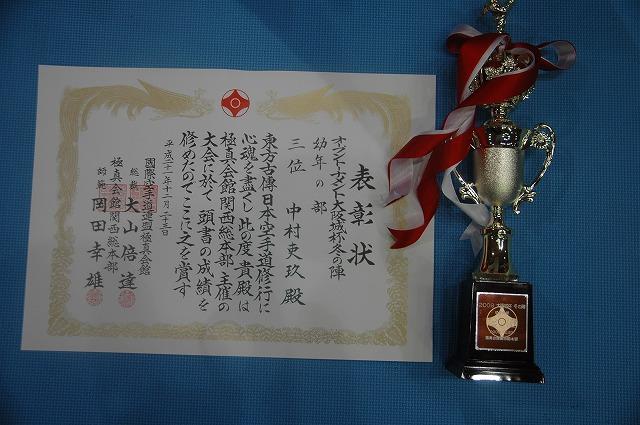 表彰状
オープントーナメント大阪城杯冬の陣
幼年の部
三位 中村吏玖殿
東方古傳日本空手道修行に
心魂を盡くし此の度貴殿は
極真会館関西総本部主催の
大会に於て頭書の成績を
修めたのでここに之を賞す
平成二十一年十二月二十三日
國際空手道連盟極真会館
総裁 大山倍達
極真会館関西総本部
師範 岡田幸雄
2009 大阪城杯 冬の陣